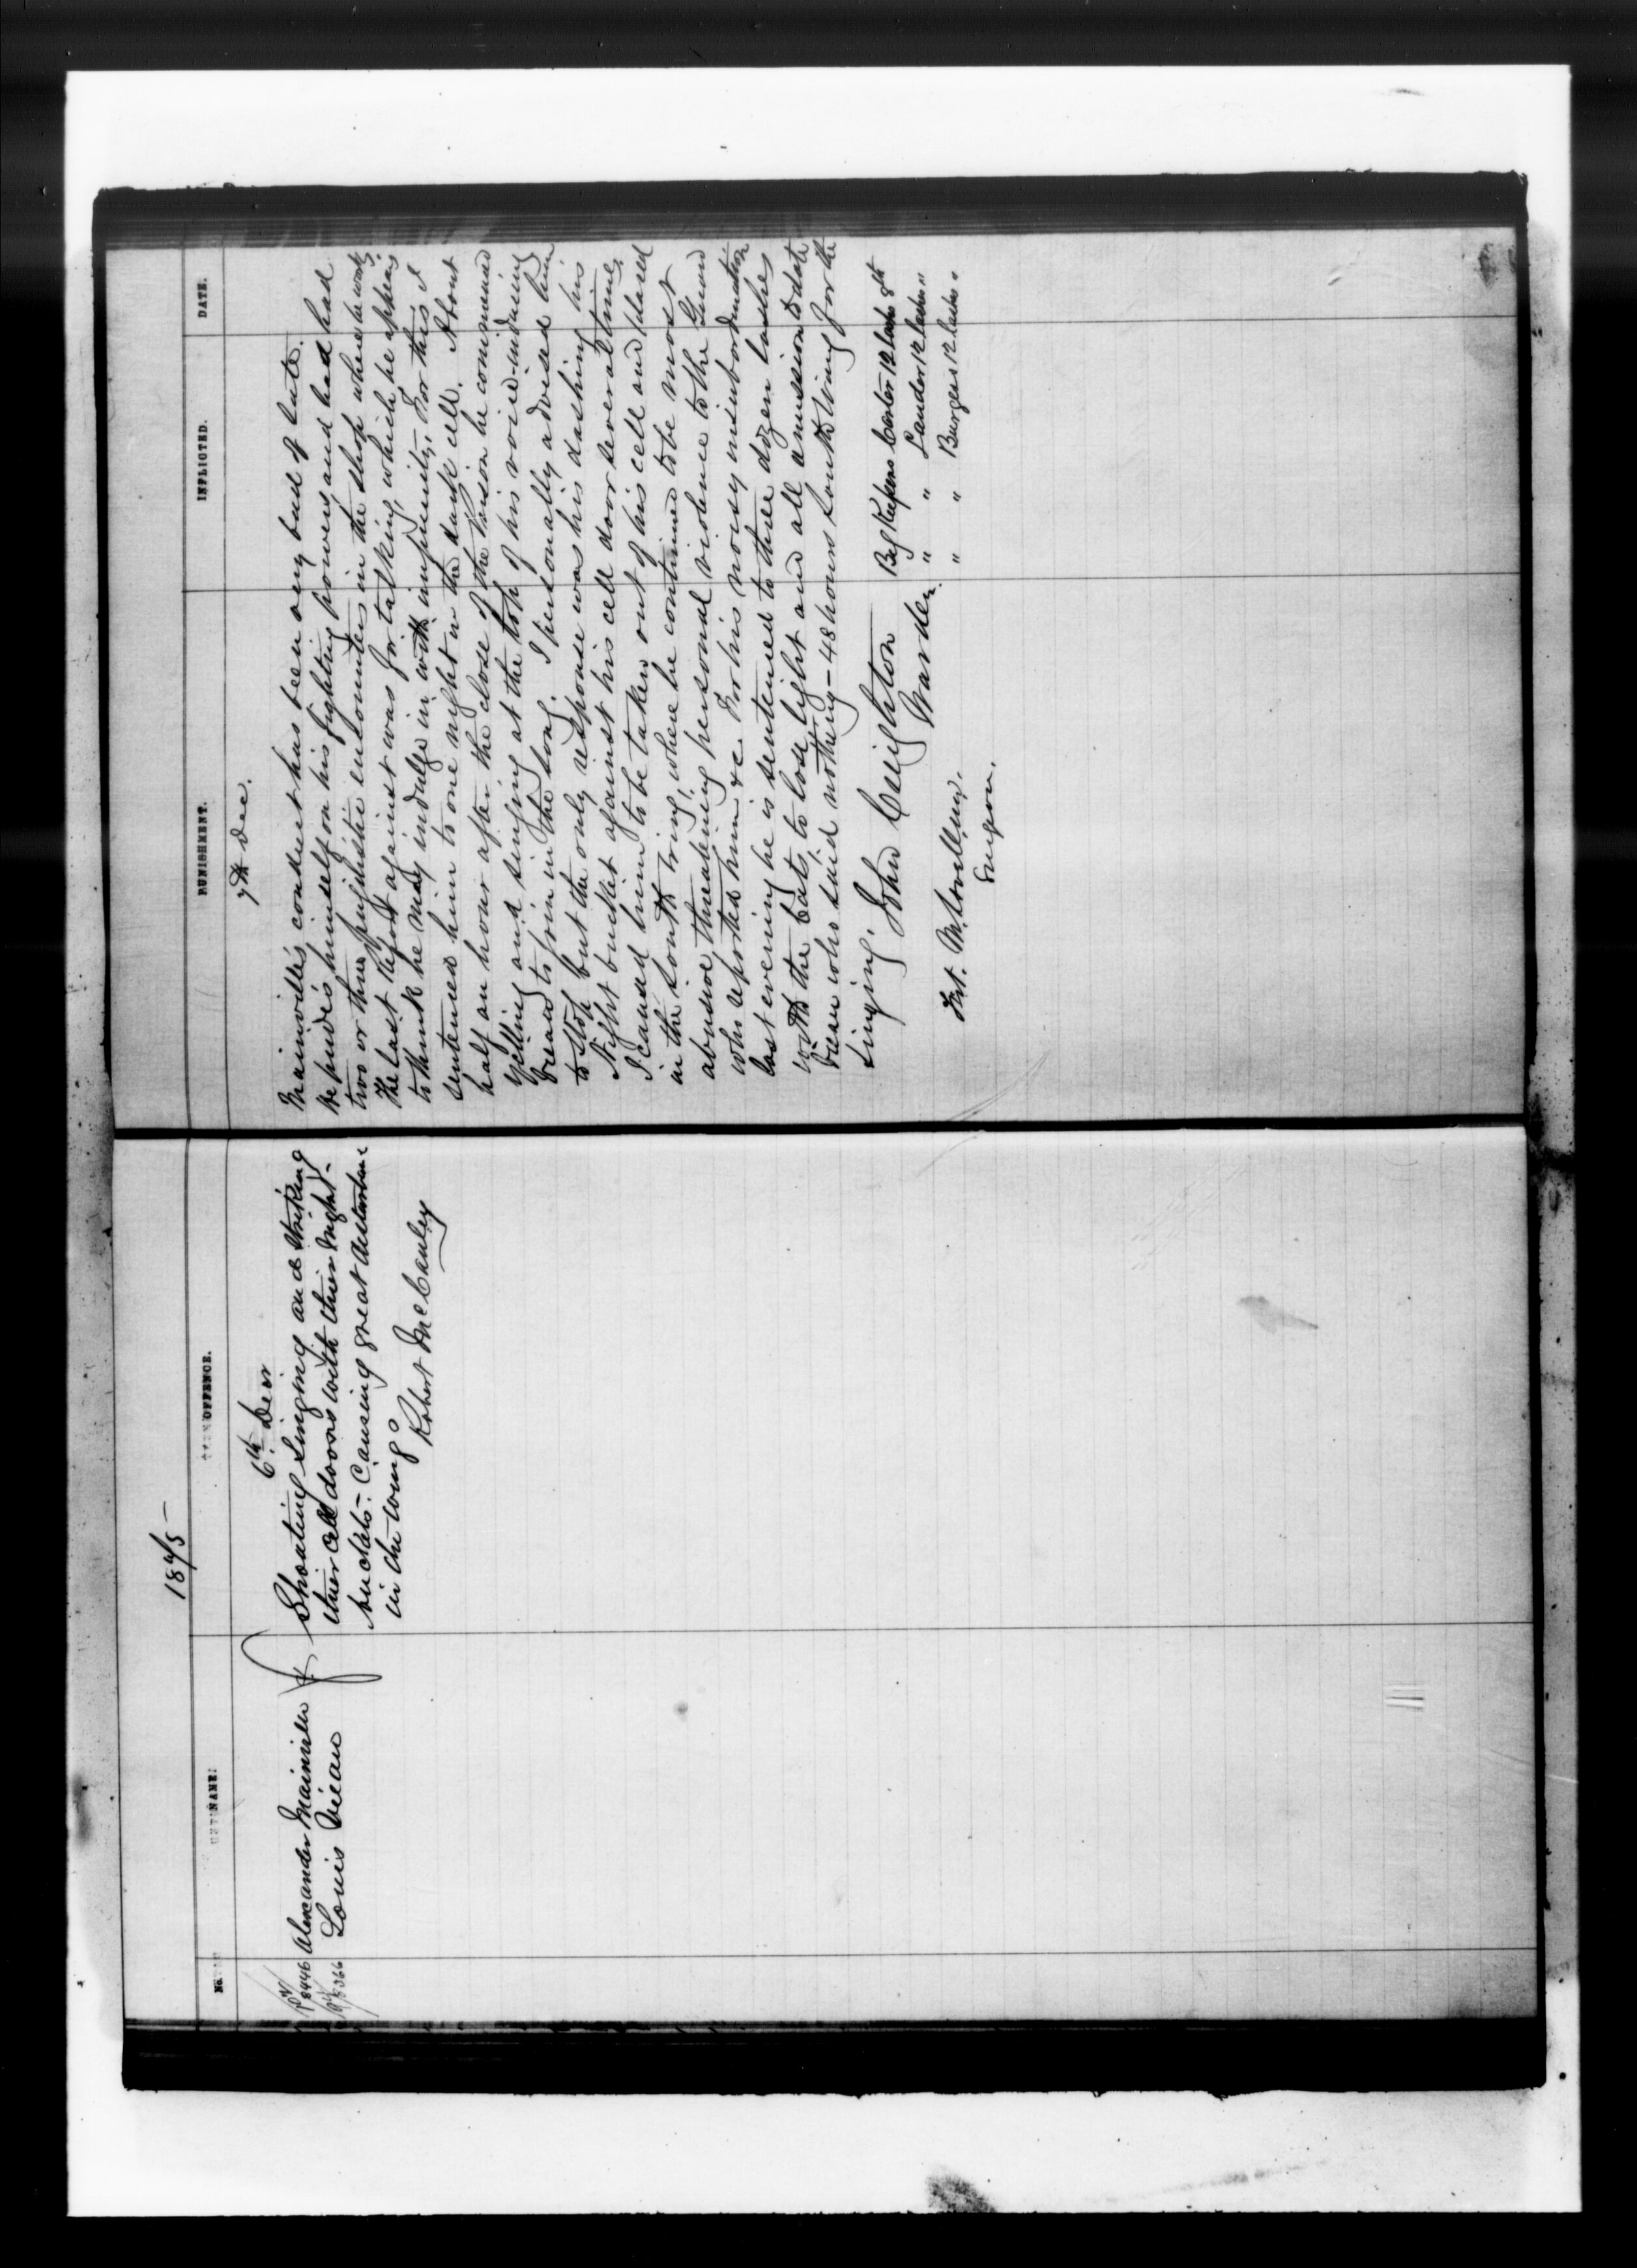 1875
No. NAME. OFFENCE.
6th Decr
8446 Alexander Mainville Shouting Singing and striking
8366 Louis Vieau their cell doors with their night
buckets – Causing great disturbance
in the wing
Robert McCauley
PUNISHMENT. INFLICTED. DATE.
7th Dec.
Mainville's conduct has been very bad of late.
He prides himself on his fighting powers and has had
two or three pugilistic encounters in the shop where he works.
The last Report against was for talking which he appears
to think he may indulge in with impunity. For this I
sentenced him to one night in the dark cell. About
half an hour after the close of the Prison he commenced
yelling and singing at the top of his voice – inducing
Vieau to join in the song. I personally advised him
to stop but the only response was his dashing his
Night bucket against his cell door several times.
I caused him to be taken out of his cell and placed
in the South Wing, where he continued to be most
abusive threatening personal violence to the Guard
who reported him &c. For his noisy insubordination
last evening he is sentenced to three dozen lashes
with the Cats, to lose light and all remission to date
Vieau who said nothing – 48 hours South Wing for the
singing.
John Creighton
Warden.
By Keepers Carter 12 lashes 8th
" " Lauder 12 lashes "
" " Burgess 12 lashes "
Surgeon.